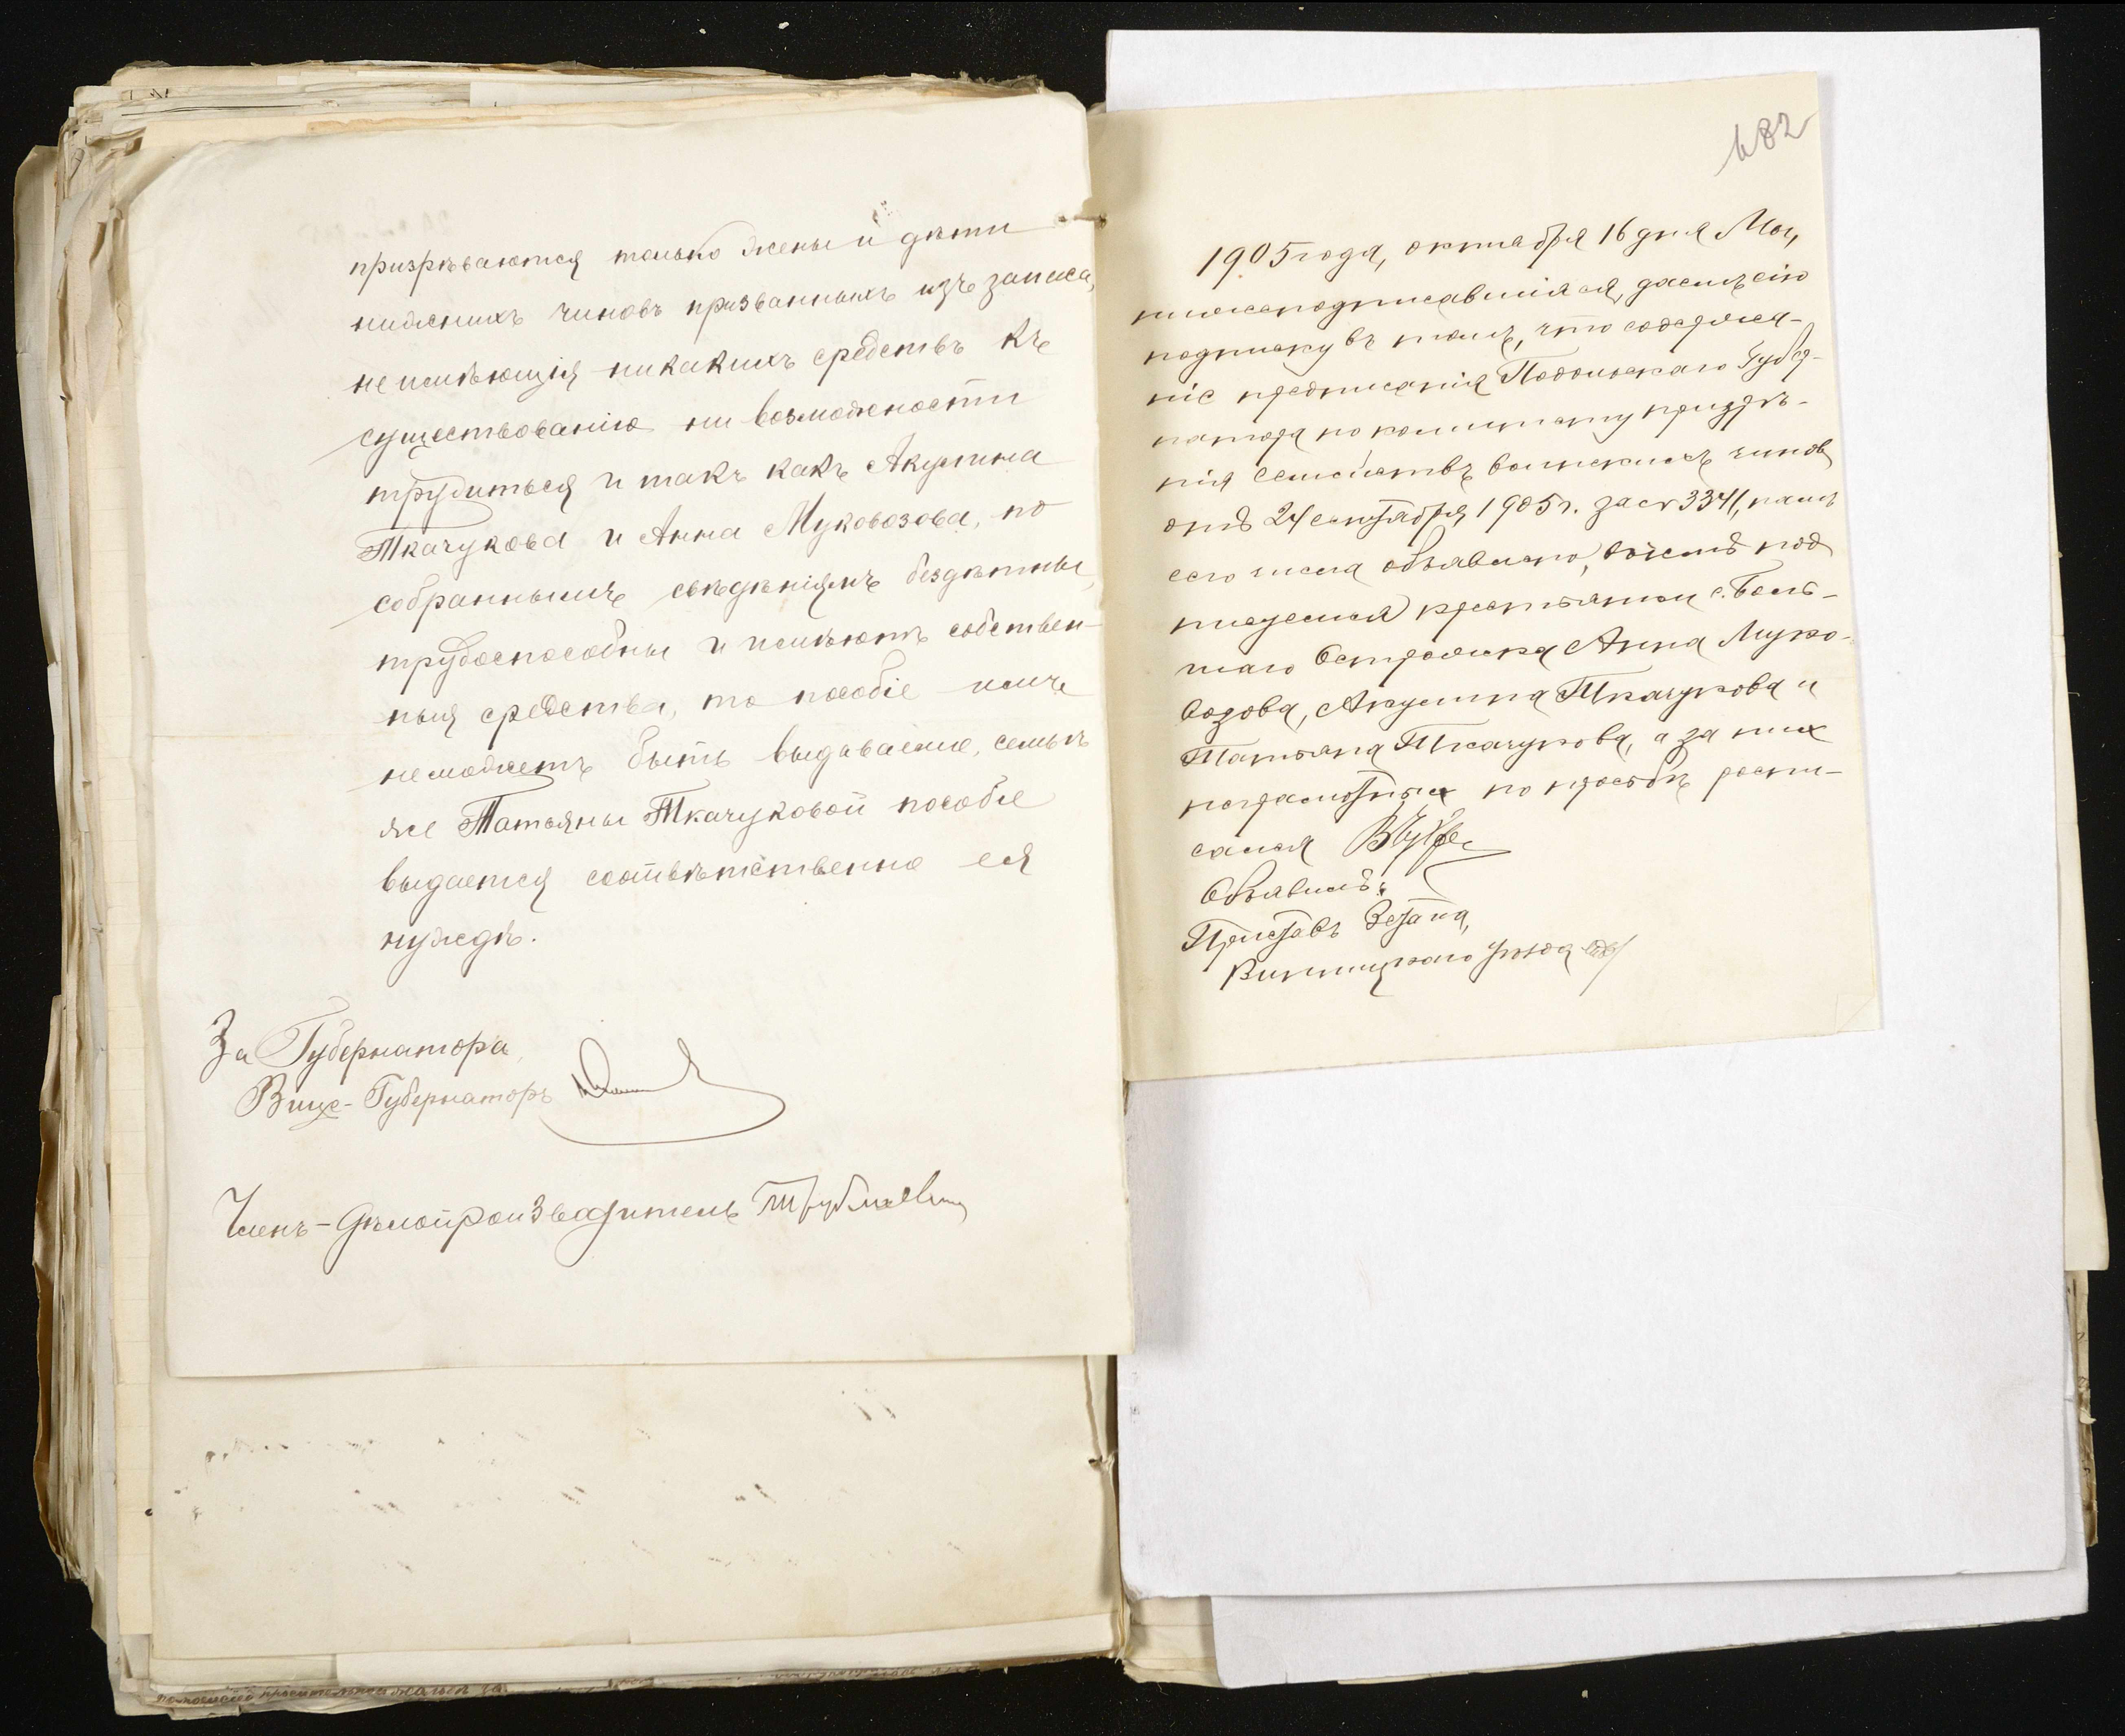 призрѣваются только жены и дѣти
нижнихъ чиновъ призванныхъ изъ запаса,
не имѣющія никакихъ средствъ къ
существованію ни возможности
трудиться и такъ какъ Акулина
Ткачукова и Анна Муковозова, по
собраннымъ свѣдѣніямъ бездѣтны,
трудоспособны и имѣютъ собствен-
ныя средства, то пособіе имъ
не можетъ быть выдаваемо, семьѣ
же Татьяны Ткачуковой пособіе
выдается соотвѣтственно ея
нуждѣ.
За Губернатора,
Вице-Губернаторъ
Членъ-Дѣлопроизводитель
682
1905 года, октября 16 дня Мы,
нижеподписавшіяся, даемъ сію
подписку въ томъ, что содержа-
ніе предписанія Подольскаго Губер-
натора по комитету призрѣ-
нія семействъ воинскихъ чиновъ
отъ 24 сентября 1905 г. за № 3341, намъ
сего числа объявлено, въ чемъ под
писуемся крестьянки с. Боль-
шаго Острожка Анна Муко-
возова, Акулина Ткачукова и
Татьяна Ткачукова, а за них
неграмотных по просьбѣ распи-
сался
Объявилъ:
Приставъ 3 стана,
Винницкаго уѣзда